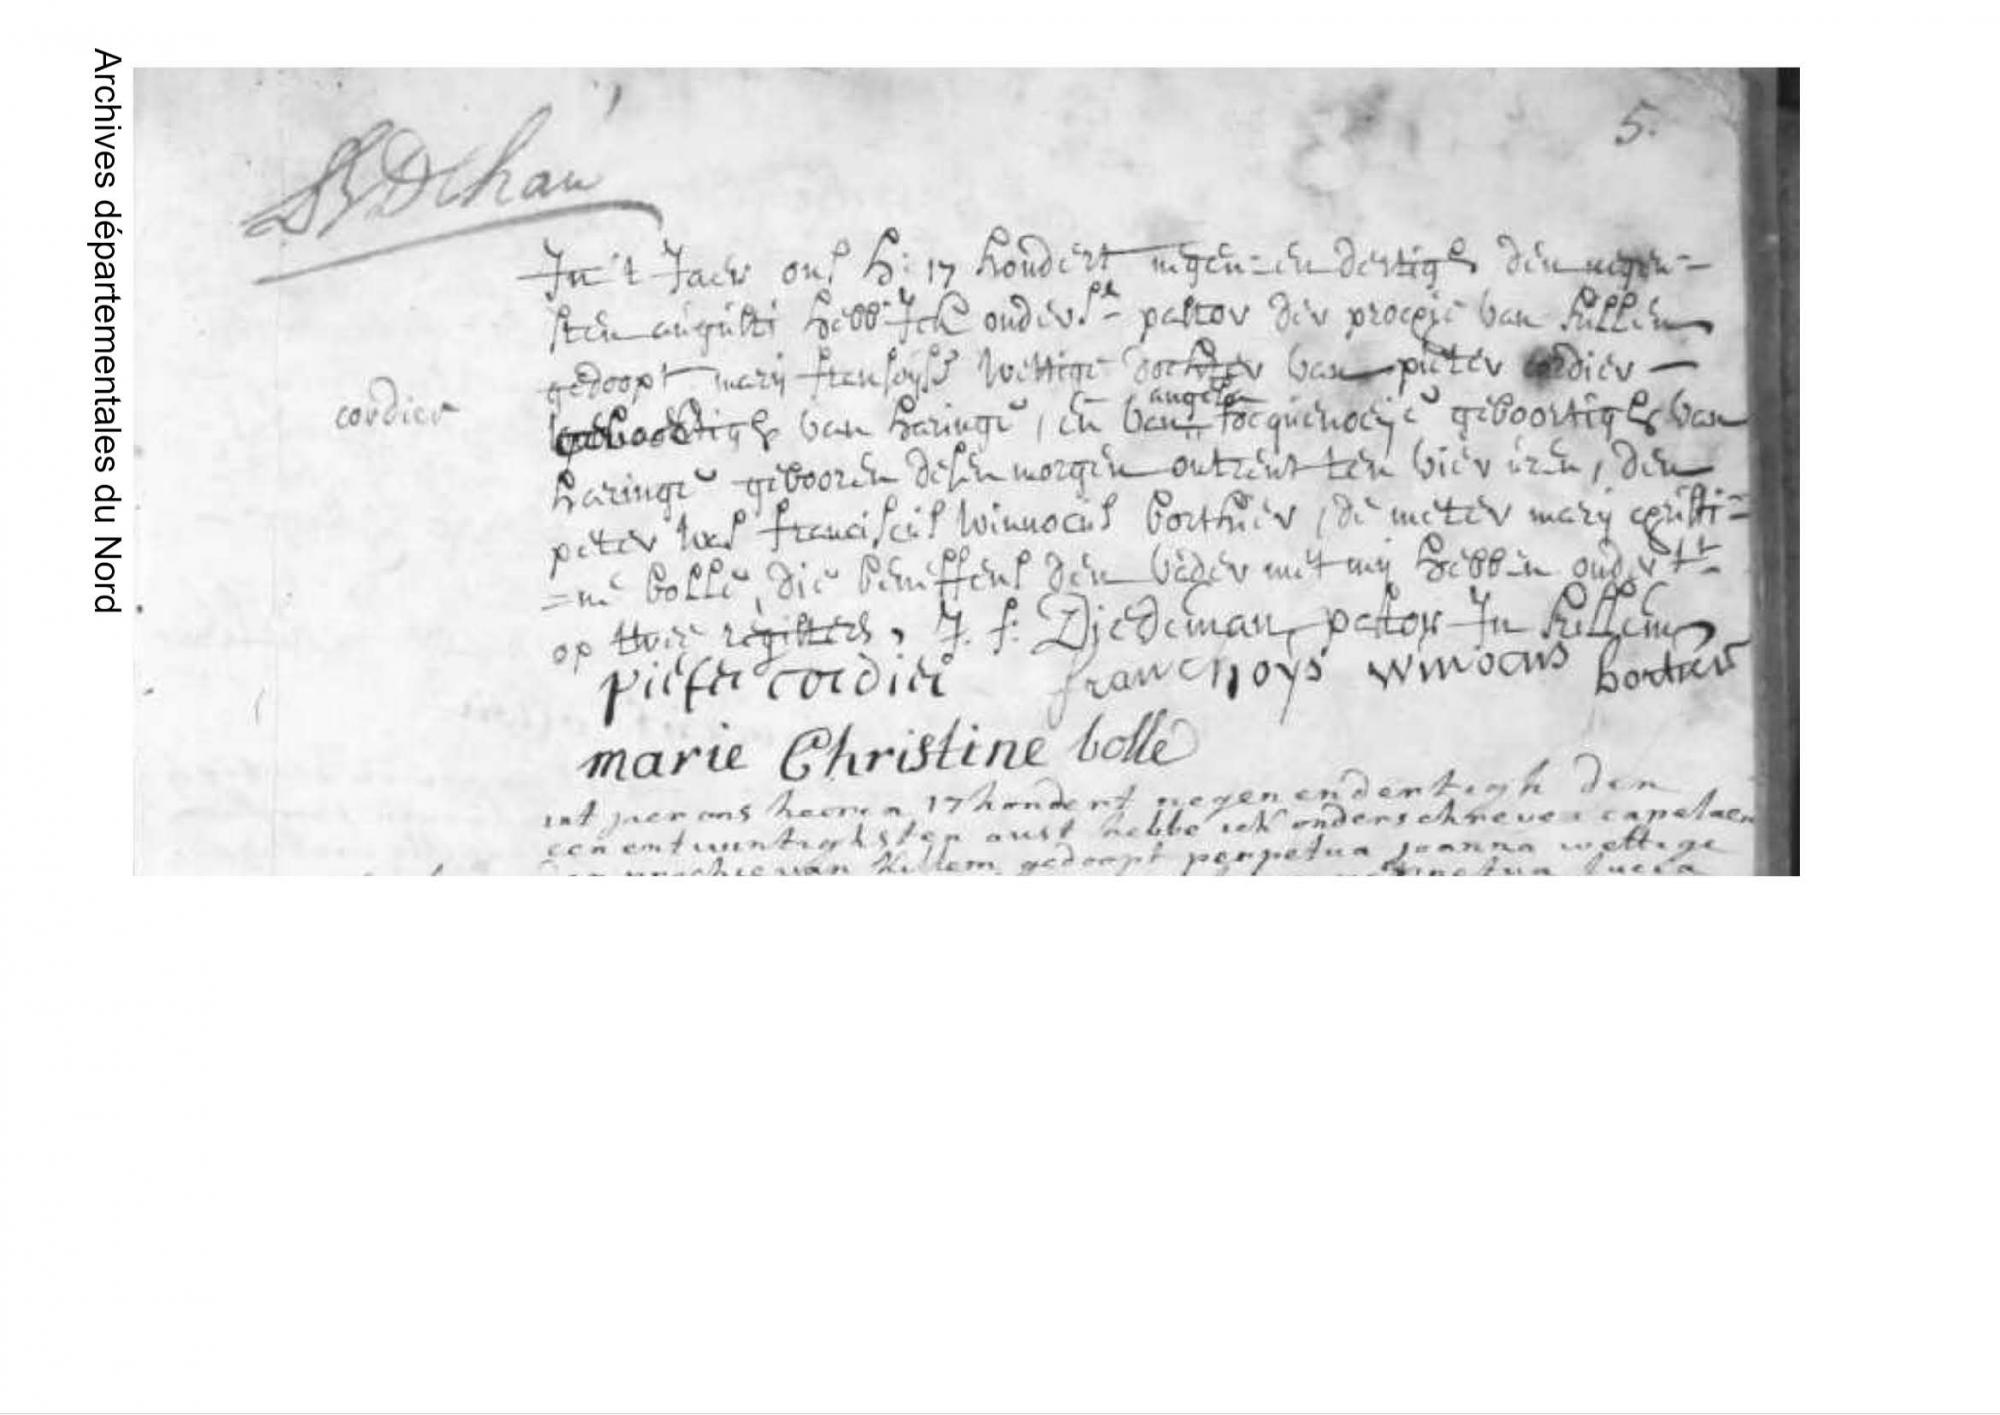 Archives départementales du Nord
5.
Dehau
In't Jaer ons h: 17 hondert negen-en dertigh den negen=
sten augusti hebb' Ick onders.e pastor der procgie van killem
gedoopt mary fransoyse wettige dochter van pieter cordier
cordier
geboortigh van haringe, en van angela focquenoeye geboortigh van
haringe gebooren desen morgen ontrent ten vier uren, den
peter was franciscus winnocus borthier, de meter mary cristi=
=ne bolle, die beneffens den vader met my hebben onder.t
op twee registers, J. f. Djedeman, pastor In killem
pieter cordier franchoys winocus bortier
marie Christine bolle
int jaer ons heeren 17 hondert negenendertigh den
een entwintighsten aust hebbe ick onderschreven capelaen
prochie van killem gedoopt perpetua joanna wettige